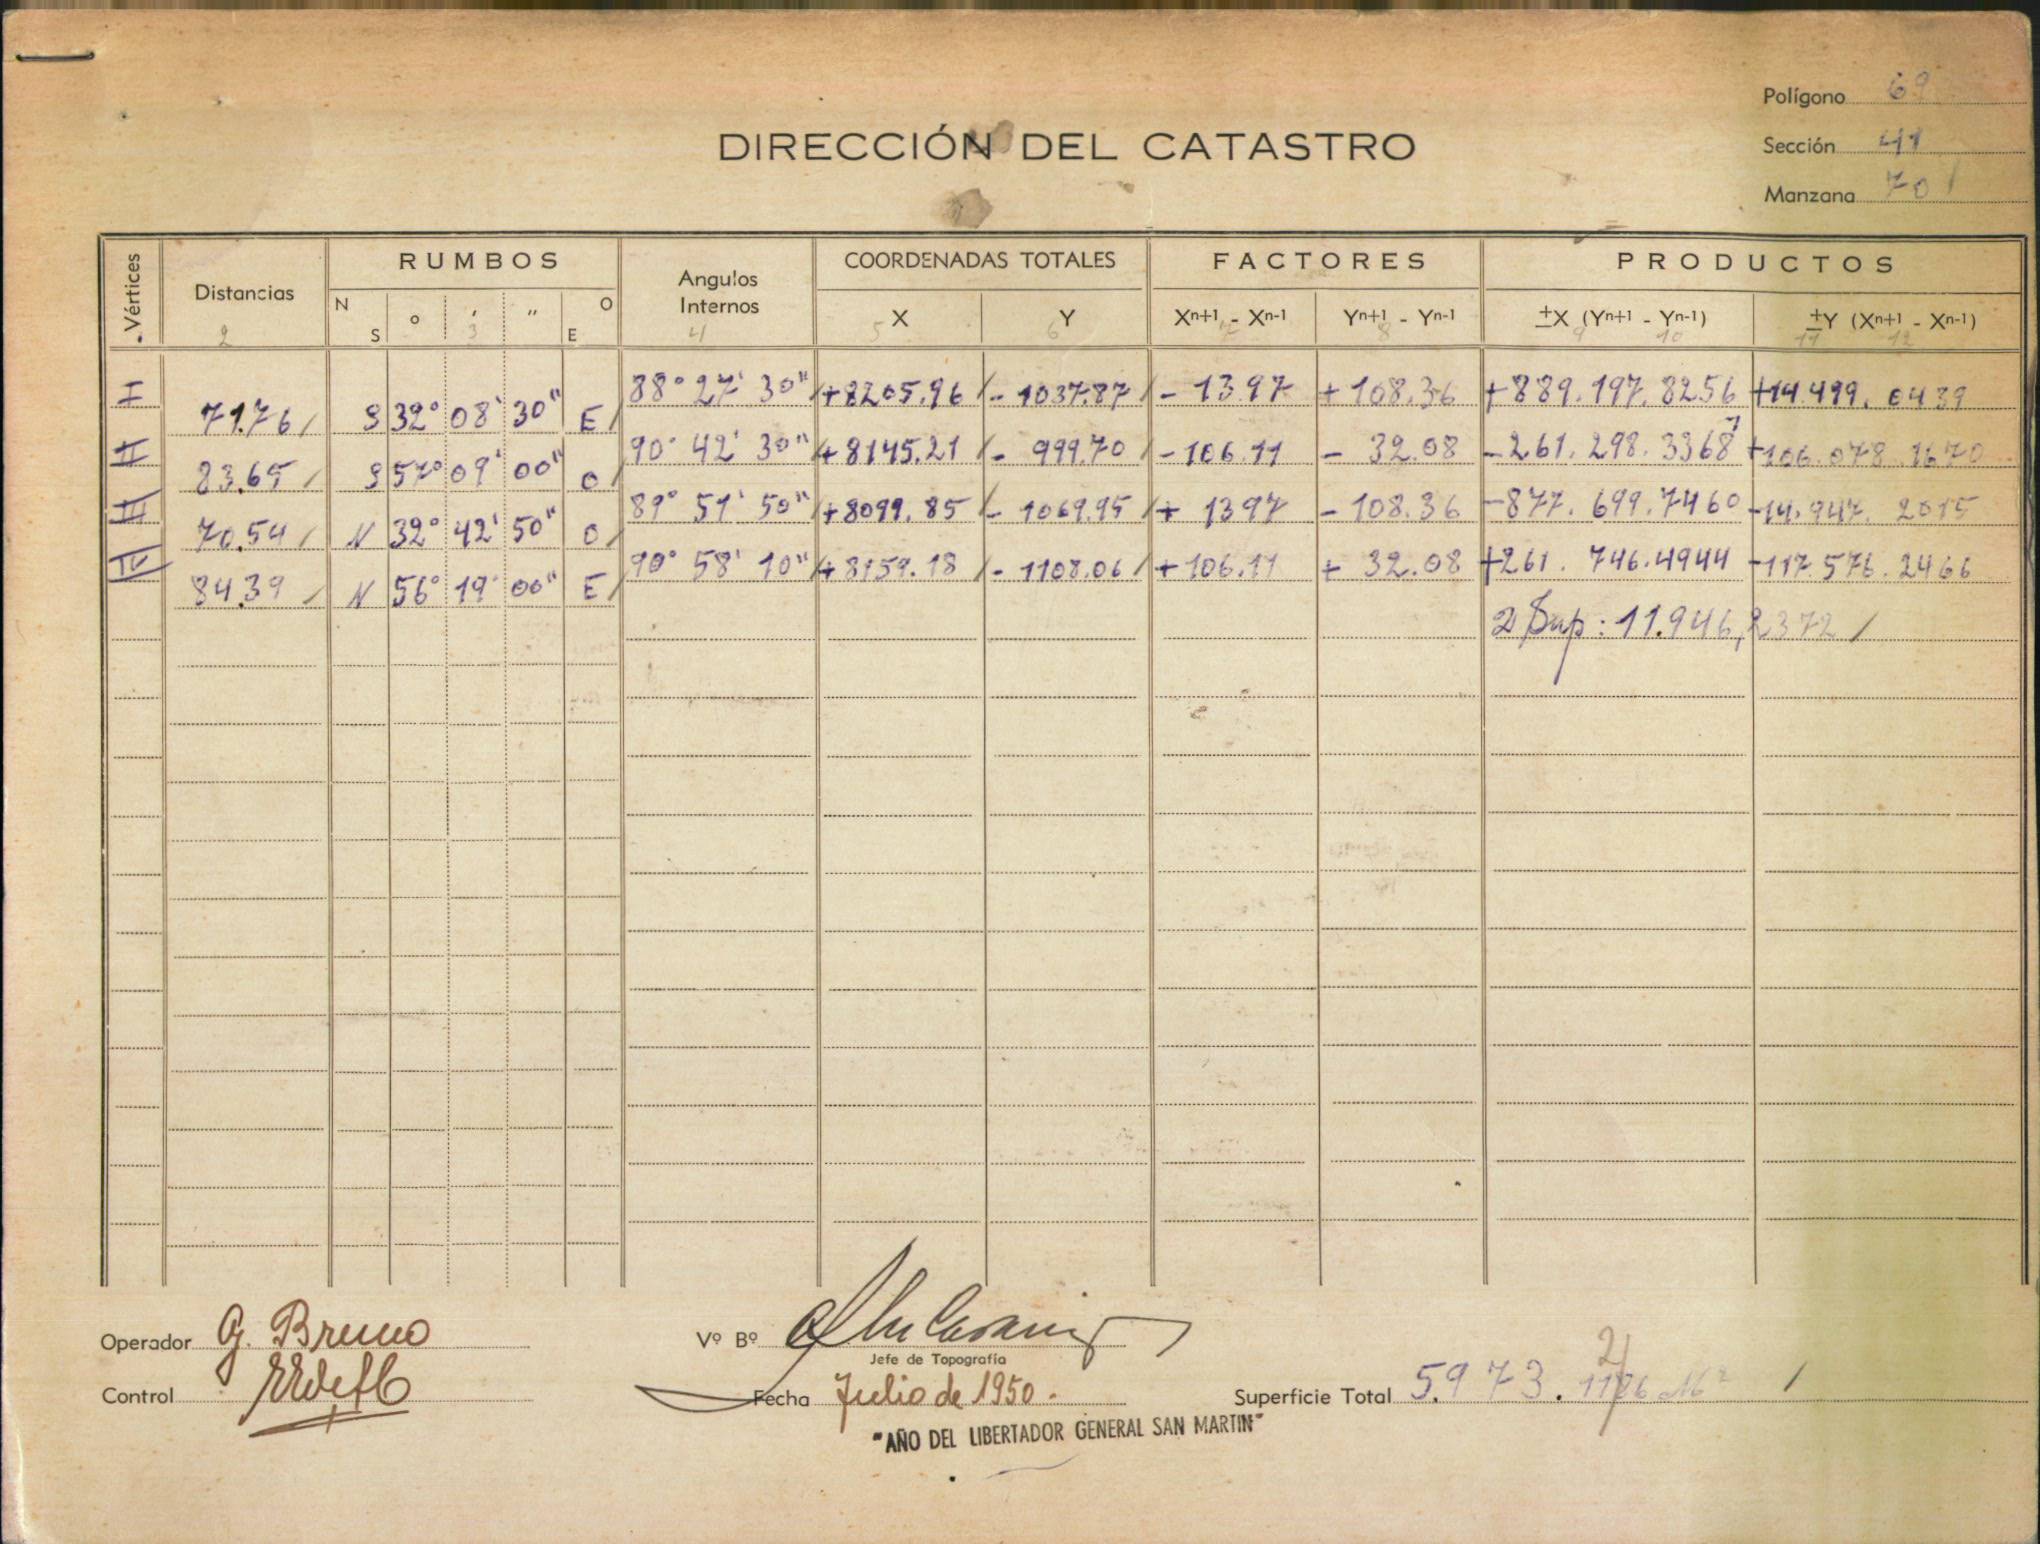 Polígono 69
DIRECCIÓN DEL CATASTRO
Sección 41
Manzana 70
Vértices Distancias RUMBOS Angulos Internos COORDENADAS TOTALES FACTORES PRODUCTOS
N S ° ' " O E X Y Xⁿ⁺¹ - Xⁿ⁻¹ Yⁿ⁺¹ - Yⁿ⁻¹ ±X (Yⁿ⁺¹ - Yⁿ⁻¹) ±Y (Xⁿ⁺¹ - Xⁿ⁻¹)
2 3 4 5 6 7 8 9 10 11 12
I 88° 27' 30" +8205.96 - 1037.87 - 13.97 + 108.36 +889.197.8256 +14.499.0439
71.76 S 32° 08' 30" E
II 90° 42' 30" +8145.21 - 999.70 - 106.11 - 32.08 -261.298.3368 +106.078.1670
83.65 S 57° 09' 00" O
III 89° 51' 50" +8099.85 - 1069.95 + 13.97 - 108.36 -877.699.7460 -14.947.2015
70.54 N 32° 42' 50" O
IV 90° 58' 10" +8159.18 - 1108.06 + 106.11 + 32.08 +261.746.4944 -117.576.2466
84.39 N 56° 19' 00" E
2 Sup: 11.946,2372
Operador G. Bruno
Vº Bº
Jefe de Topografía
Control
Fecha Julio de 1950.
Superficie Total 5.973.1186 M²
"AÑO DEL LIBERTADOR GENERAL SAN MARTIN"